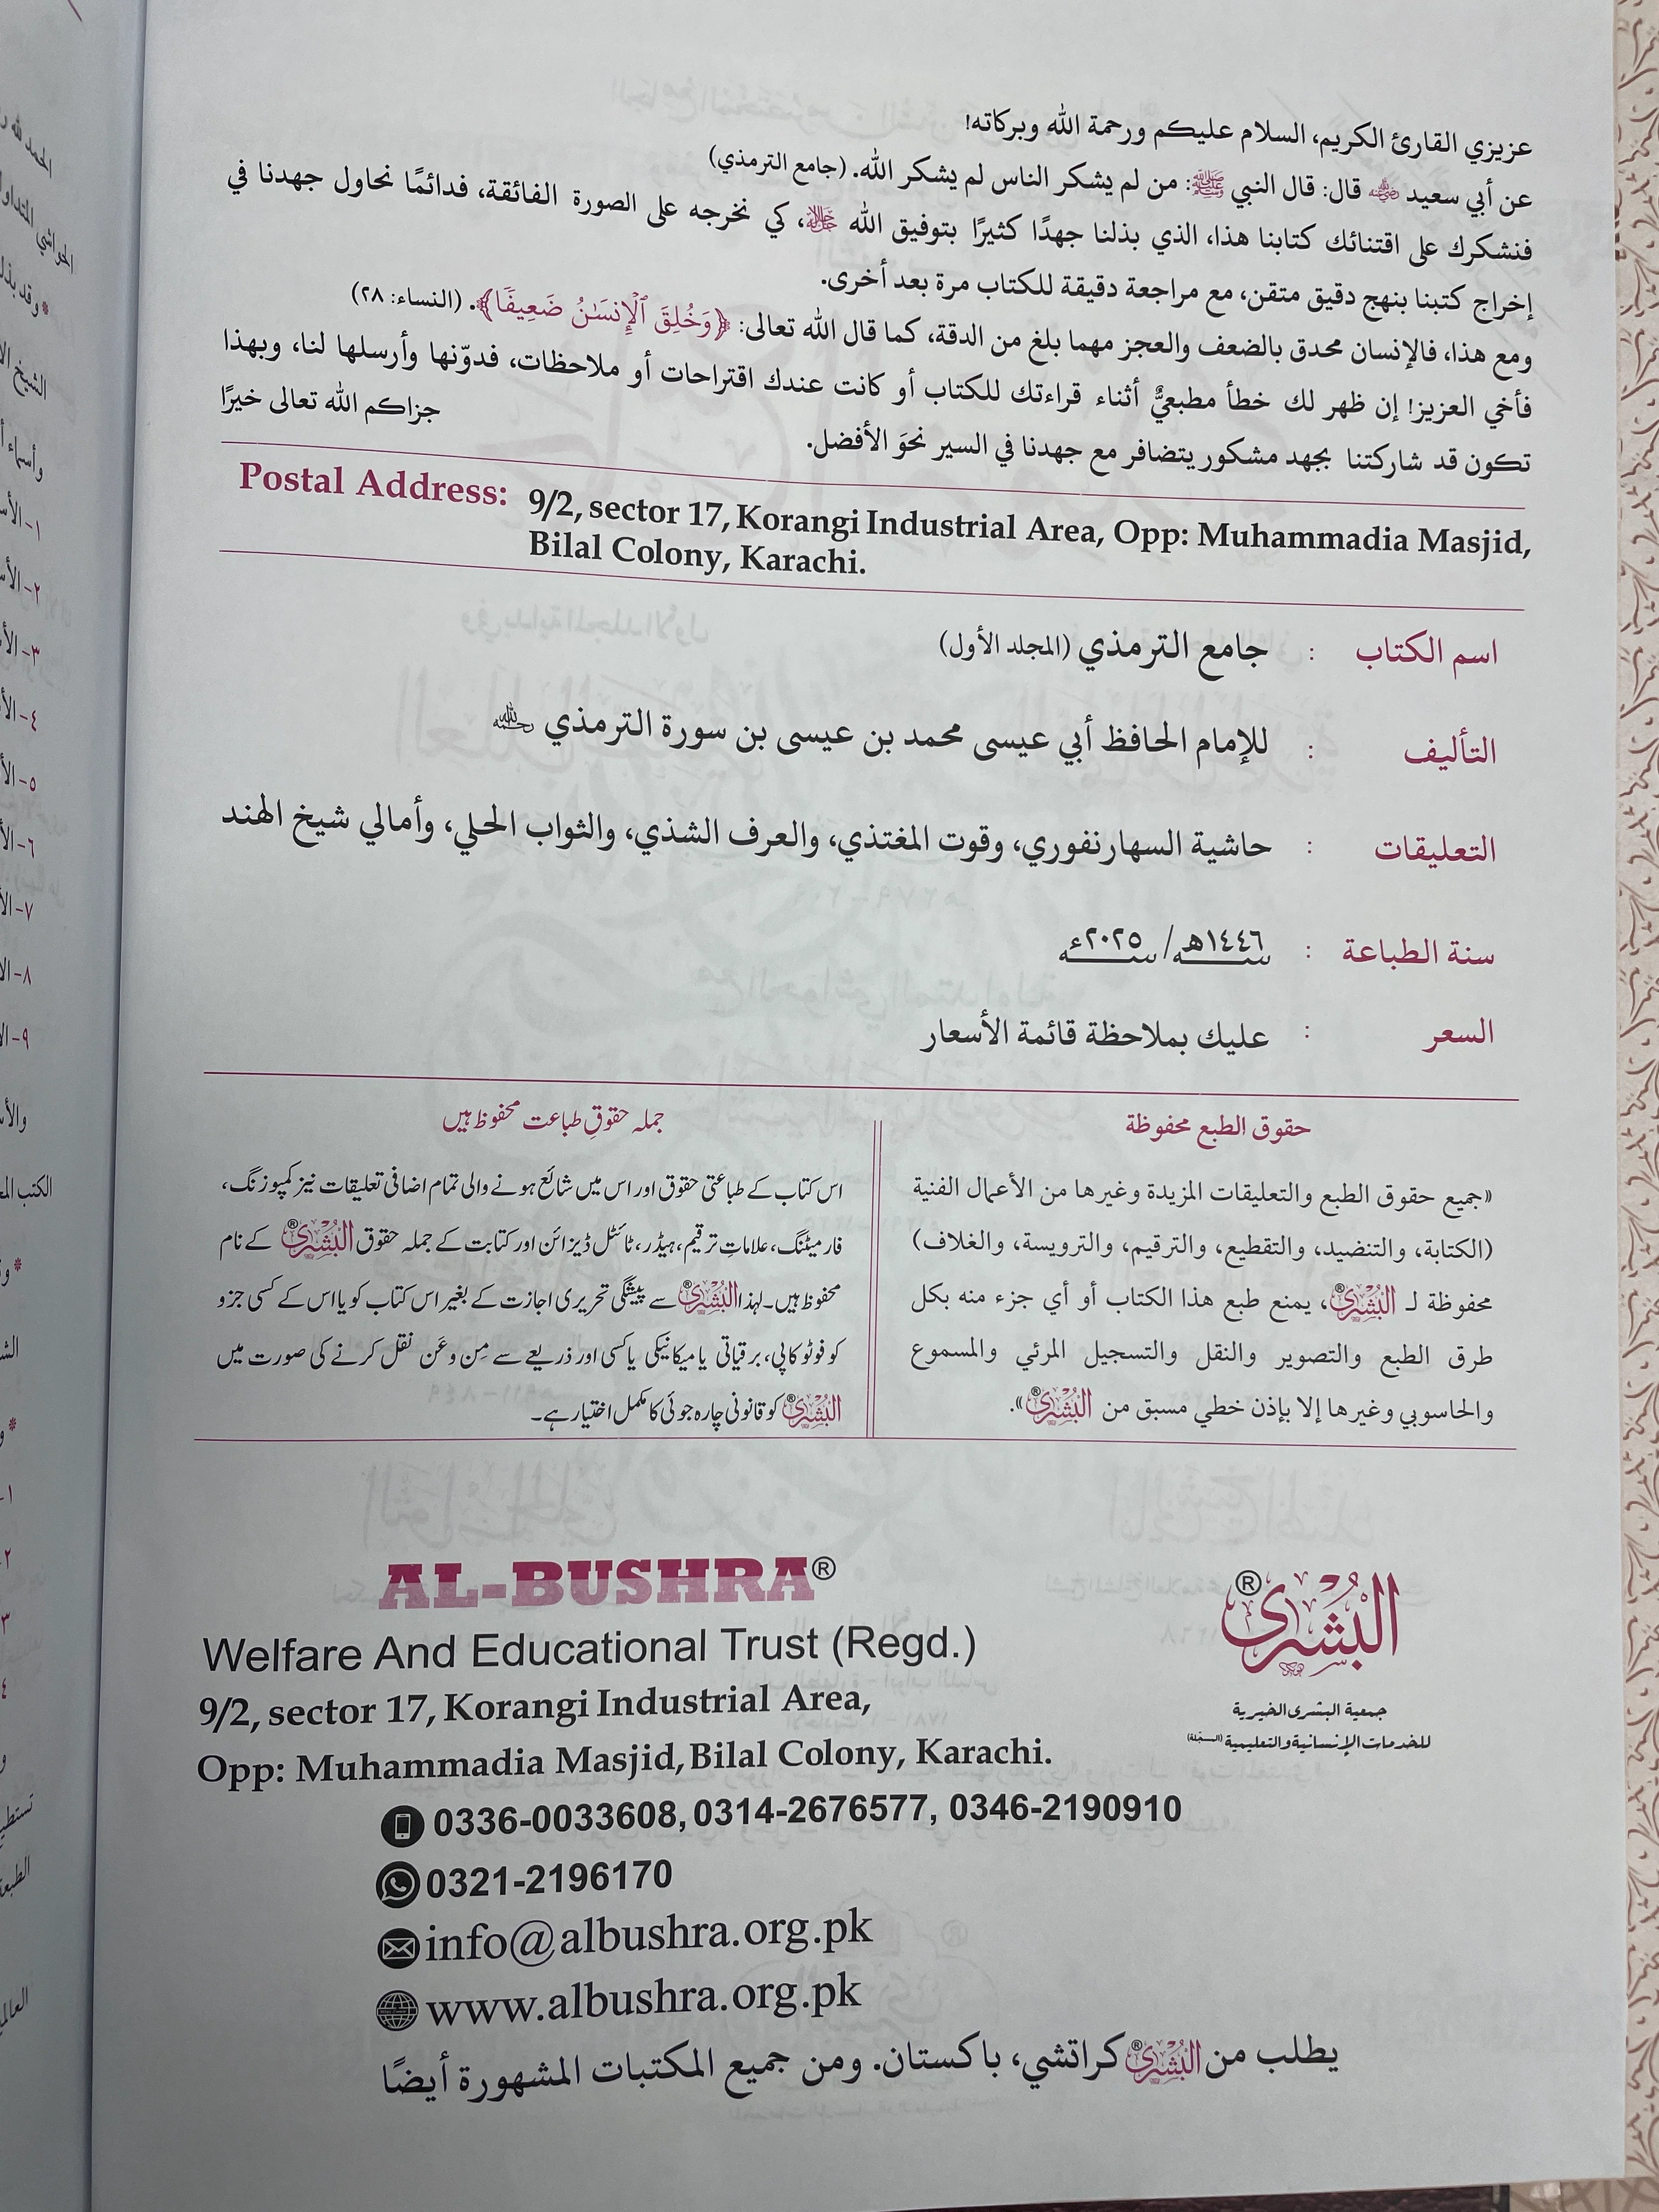 عزيزي القارئ الكريم، السلام عليكم ورحمة الله وبركاته!
عن أبي سعيد رضي الله عنه قال: قال النبي ﷺ: من لم يشكر الناس لم يشكر الله. (جامع الترمذي)
فنشكرك على اقتنائك كتابنا هذا، الذي بذلنا جهدًا كثيرًا بتوفيق الله ﷻ، كي نخرجه على الصورة الفائقة، فدائمًا نحاول جهدنا في
إخراج كتبنا بنهج دقيق متقن، مع مراجعة دقيقة للكتاب مرة بعد أخرى.
ومع هذا، فالإنسان محدق بالضعف والعجز مهما بلغ من الدقة، كما قال الله تعالى: ﴿وَخُلِقَ ٱلْإِنسَٰنُ ضَعِيفًا﴾. (النساء: ٢٨)
فأخي العزيز! إن ظهر لك خطأ مطبعيٌّ أثناء قراءتك للكتاب أو كانت عندك اقتراحات أو ملاحظات، فدوّنها وأرسلها لنا، وبهذا
تكون قد شاركتنا بجهد مشكور يتضافر مع جهدنا في السير نحوَ الأفضل.
جزاكم الله تعالى خيرًا
Postal Address: 9/2, sector 17, Korangi Industrial Area, Opp: Muhammadia Masjid,
Bilal Colony, Karachi.
اسم الكتاب : جامع الترمذي (المجلد الأول)
التأليف : للإمام الحافظ أبي عيسى محمد بن عيسى بن سورة الترمذي رحمه الله
التعليقات : حاشية السهارنفوري، وقوت المغتذي، والعرف الشذي، والثواب الحلي، وأمالي شيخ الهند
سنة الطباعة : سنة ١٤٤٦ھ / سنة ٢٠٢٥ء
السعر : عليك بملاحظة قائمة الأسعار
حقوق الطبع محفوظة
«جميع حقوق الطبع والتعليقات المزيدة وغيرها من الأعمال الفنية
(الكتابة، والتنضيد، والتقطيع، والترقيم، والترويسة، والغلاف)
محفوظة لـ البُشرى®، يمنع طبع هذا الكتاب أو أي جزء منه بكل
طرق الطبع والتصوير والنقل والتسجيل المرئي والمسموع
والحاسوبي وغيرها إلا بإذن خطي مسبق من البُشرى®».
جملہ حقوقِ طباعت محفوظ ہیں
اس کتاب کے طباعتی حقوق اور اس میں شائع ہونے والی تمام اضافی تعلیقات نیز کمپوزنگ،
فارمیٹنگ، علاماتِ ترقیم، ہیڈر، ٹائٹل ڈیزائن اور کتابت کے جملہ حقوق البُشرى® کے نام
محفوظ ہیں۔ لہذا البُشرى® سے پیشگی تحریری اجازت کے بغیر اس کتاب کو یا اس کے کسی جزو
کو فوٹو کاپی، برقیاتی یا میکانیکی یا کسی اور ذریعے سے مِن وعَن نقل کرنے کی صورت میں
البُشرى® کو قانونی چارہ جوئی کا مکمل اختیار ہے۔
AL-BUSHRA®
Welfare And Educational Trust (Regd.)
9/2, sector 17, Korangi Industrial Area,
Opp: Muhammadia Masjid, Bilal Colony, Karachi.
البُشرى®
جمعية البشرى الخيرية
للخدمات الإنسانية والتعليمية (المسجّلة)
0336-0033608, 0314-2676577, 0346-2190910
0321-2196170
info@albushra.org.pk
www.albushra.org.pk
يطلب من البُشرى® كراتشي، باكستان. ومن جميع المكتبات المشهورة أيضًا